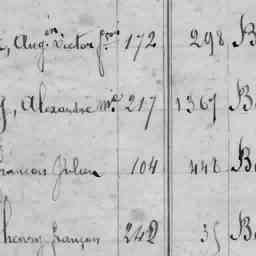 , Aug.in Victor fçois 172 298 B
, Alexandre Mie 217 1367 Be
françois Julien 104 448 Be
henry françois 242 35 Be